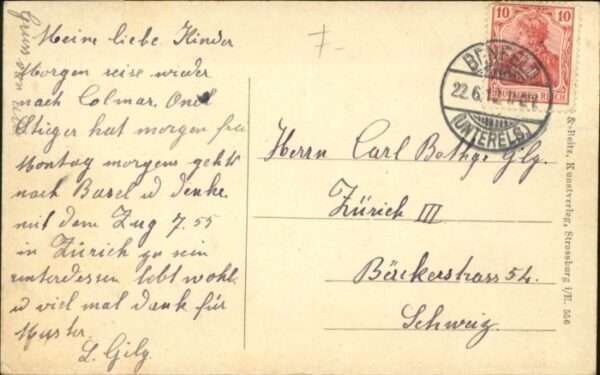 Meine liebe Kinder
Morgen reise wieder
nach Colmar, Onel
Stieger hat morgen frei
Montag morgens geht's
nach Basel u denke
mit dem Zug 7.55
in Zürich zu sein
unterdessen lebt wohl
u viel mal dank für
L. Gilg.
10 10
BENFELD
22.6.12
(UNTERELS.)
Herrn Carl Bethge Gilg.
Zürich III
Bäckerstrass 54.
Schweiz.
&-Beitz, Kunstverlag, Strassburg i/E. 556